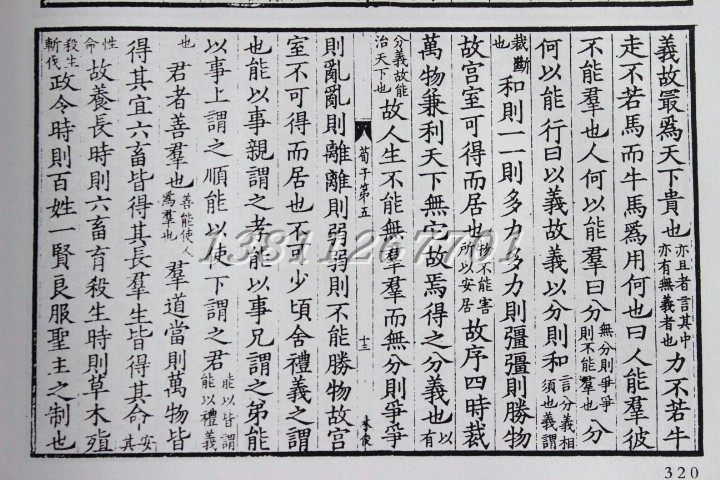 義故最爲天下貴也亦且者言其中亦有無義者也力不若牛
走不若馬而牛馬爲用何也曰人能羣彼
不能羣也人何以能羣曰分無分則爭爭則不能羣也分
何以能行曰以義故義以分則和言分義相須也義謂
裁斷也和則一一則多力多力則彊彊則勝物
故宮室可得而居也物不能害所以安居故序四時裁
萬物兼利天下無它故焉得之分義也以有
分義故能治天下也故人生不能無羣羣而無分則爭爭
荀子第五
十三
則亂亂則離離則弱弱則不能勝物故宮
室不可得而居也不可少頃舍禮義之謂
也能以事親謂之孝能以事兄謂之弟能
以事上謂之順能以使下謂之君能以皆謂能以禮義
也君者善羣也善能使人爲羣也羣道當則萬物皆
得其宜六畜皆得其長羣生皆得其命安其
性命故養長時則六畜育殺生時則草木殖
殺生斬伐政令時則百姓一賢良服聖主之制也
13811267701
320